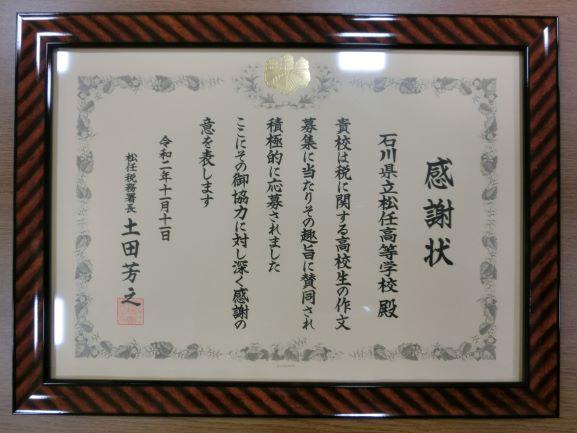 感謝状
石川県立松任高等学校 殿
貴校は税に関する高校生の作文
募集に当たりその趣旨に賛同され
積極的に応募されました
ここにその御協力に対し深く感謝の
意を表します
令和二年十一月十一日
松任税務署長 土田芳之